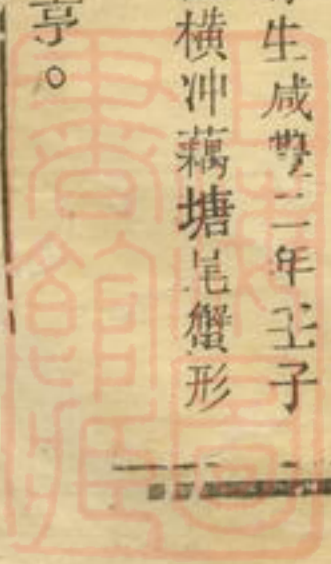 生咸豐二年壬子
橫冲藕塘尾蟹形
享。